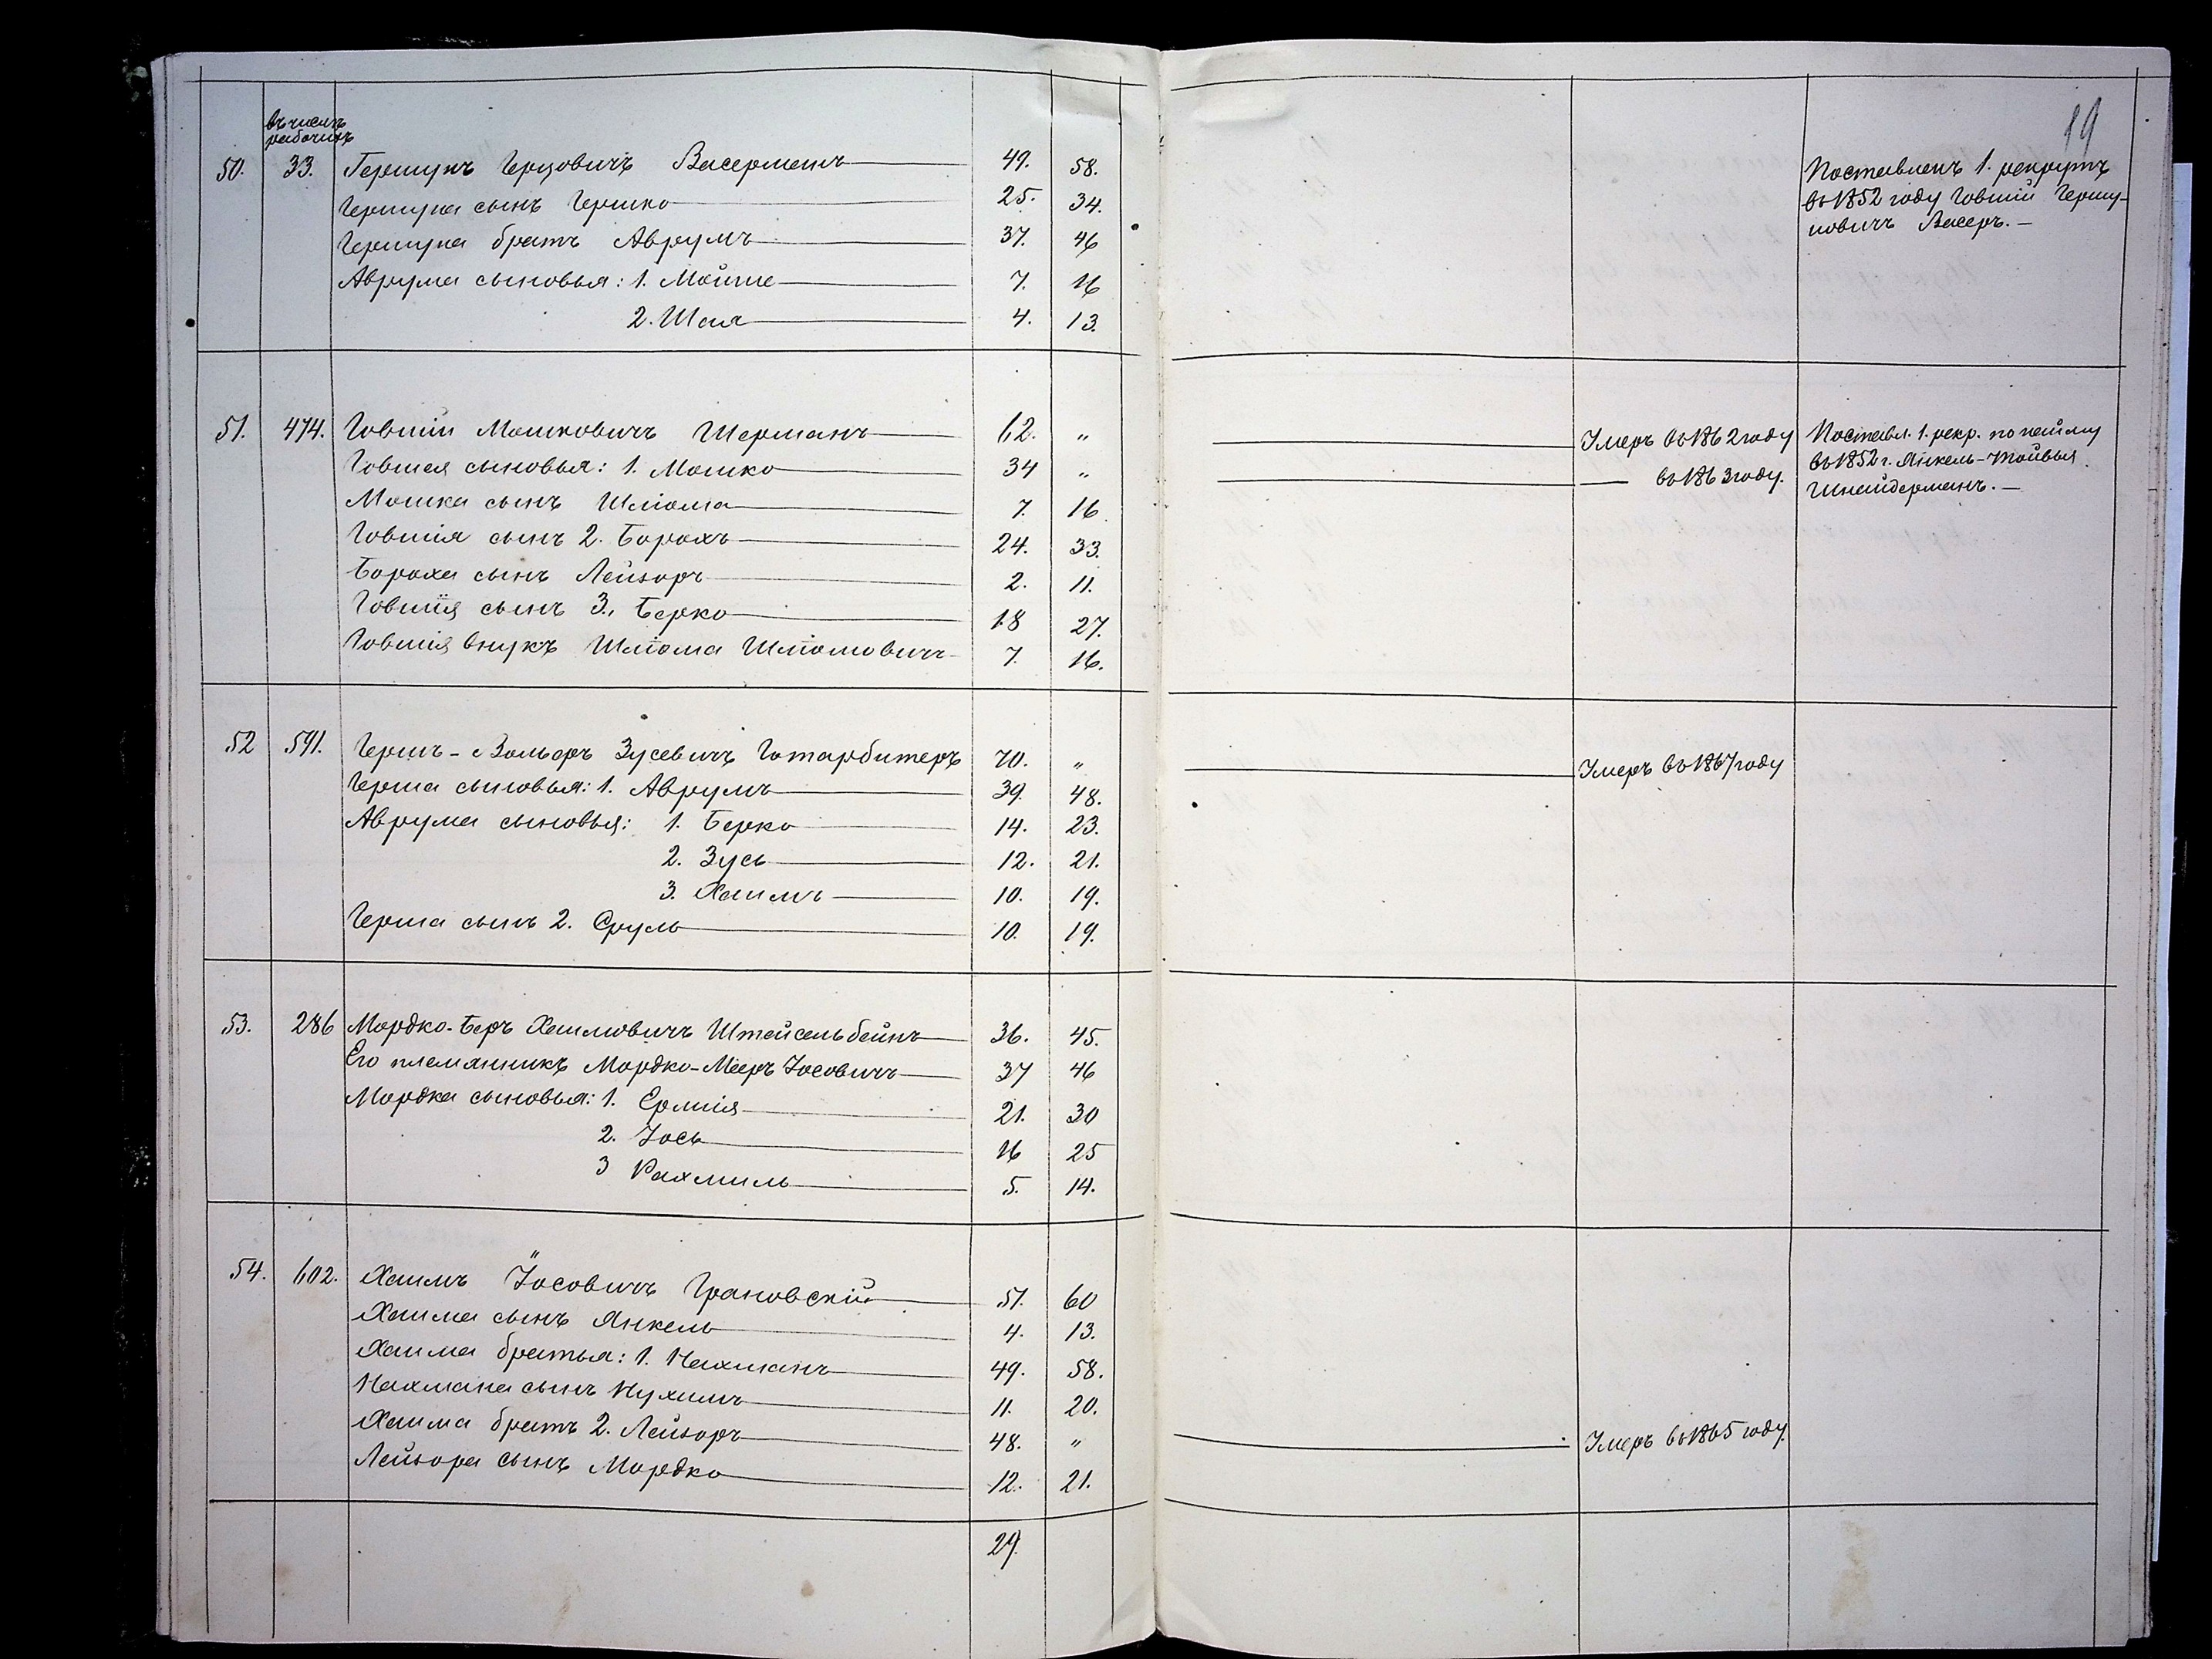 19
въ числѣ
рабочихъ
50. 33. Гершунъ Герцовичъ Васерманъ 49. 58. Поставленъ 1. рекрутъ
Гершуна сынъ Гершко 25. 34. въ 1852 году Іовшій Гершу-
Гершуна братъ Аврумъ 37. 46 новичъ Васеръ. —
Аврума сыновья: 1. Мойше 7. 16
2. Шая 4. 13.
51. 474. Іовшій Мошковичъ Шерманъ 62. „ Умеръ въ 1862 году Поставл. 1. рекр. по найму
Іовшея сыновья: 1. Мошко 34 „ — въ 1863 году. въ 1852 г. Янкель-Тойвья
Мошка сынъ Шліома 7. 16. Шнайдерманъ. —
Іовшія сынъ 2. Борохъ 24. 33.
Бороха сынъ Лейзоръ 2. 11.
Іовшія сынъ 3., Берко 18 27.
Іовшія внукъ Шліома Шліомовичъ 7. 16.
52 591. Гершъ-Вольфъ Зусевичъ Готарбитеръ 70. „ Умеръ въ 1867 году
Герша сыновья: 1. Аврумъ 39. 48.
Аврума сыновья: 1. Берко 14. 23.
2. Зусь 12. 21.
3. Хаимъ 10. 19.
Герша сынъ 2. Сруль 10. 19.
53. 286 Мордко-Беръ Хаимовичъ Штейсельбейнъ 36. 45.
Его племянникъ Мордко-Мееръ Іосовичъ 37 46
Мордка сыновья: 1. Ермія 21. 30
2. Іось 16 25
3 Рахмиль 5. 14.
54. 602. Хаимъ Іосовичъ Грановскій 51. 60
Хаима сынъ Янкель 4. 13.
Хаима братья: 1. Нахманъ 49. 58.
Нахмана сынъ Нухимъ 11. 20.
Хаима братъ 2. Лейзоръ 48. „ Умеръ въ 1865 году.
Лейзора сынъ Мордко 12. 21.
29.